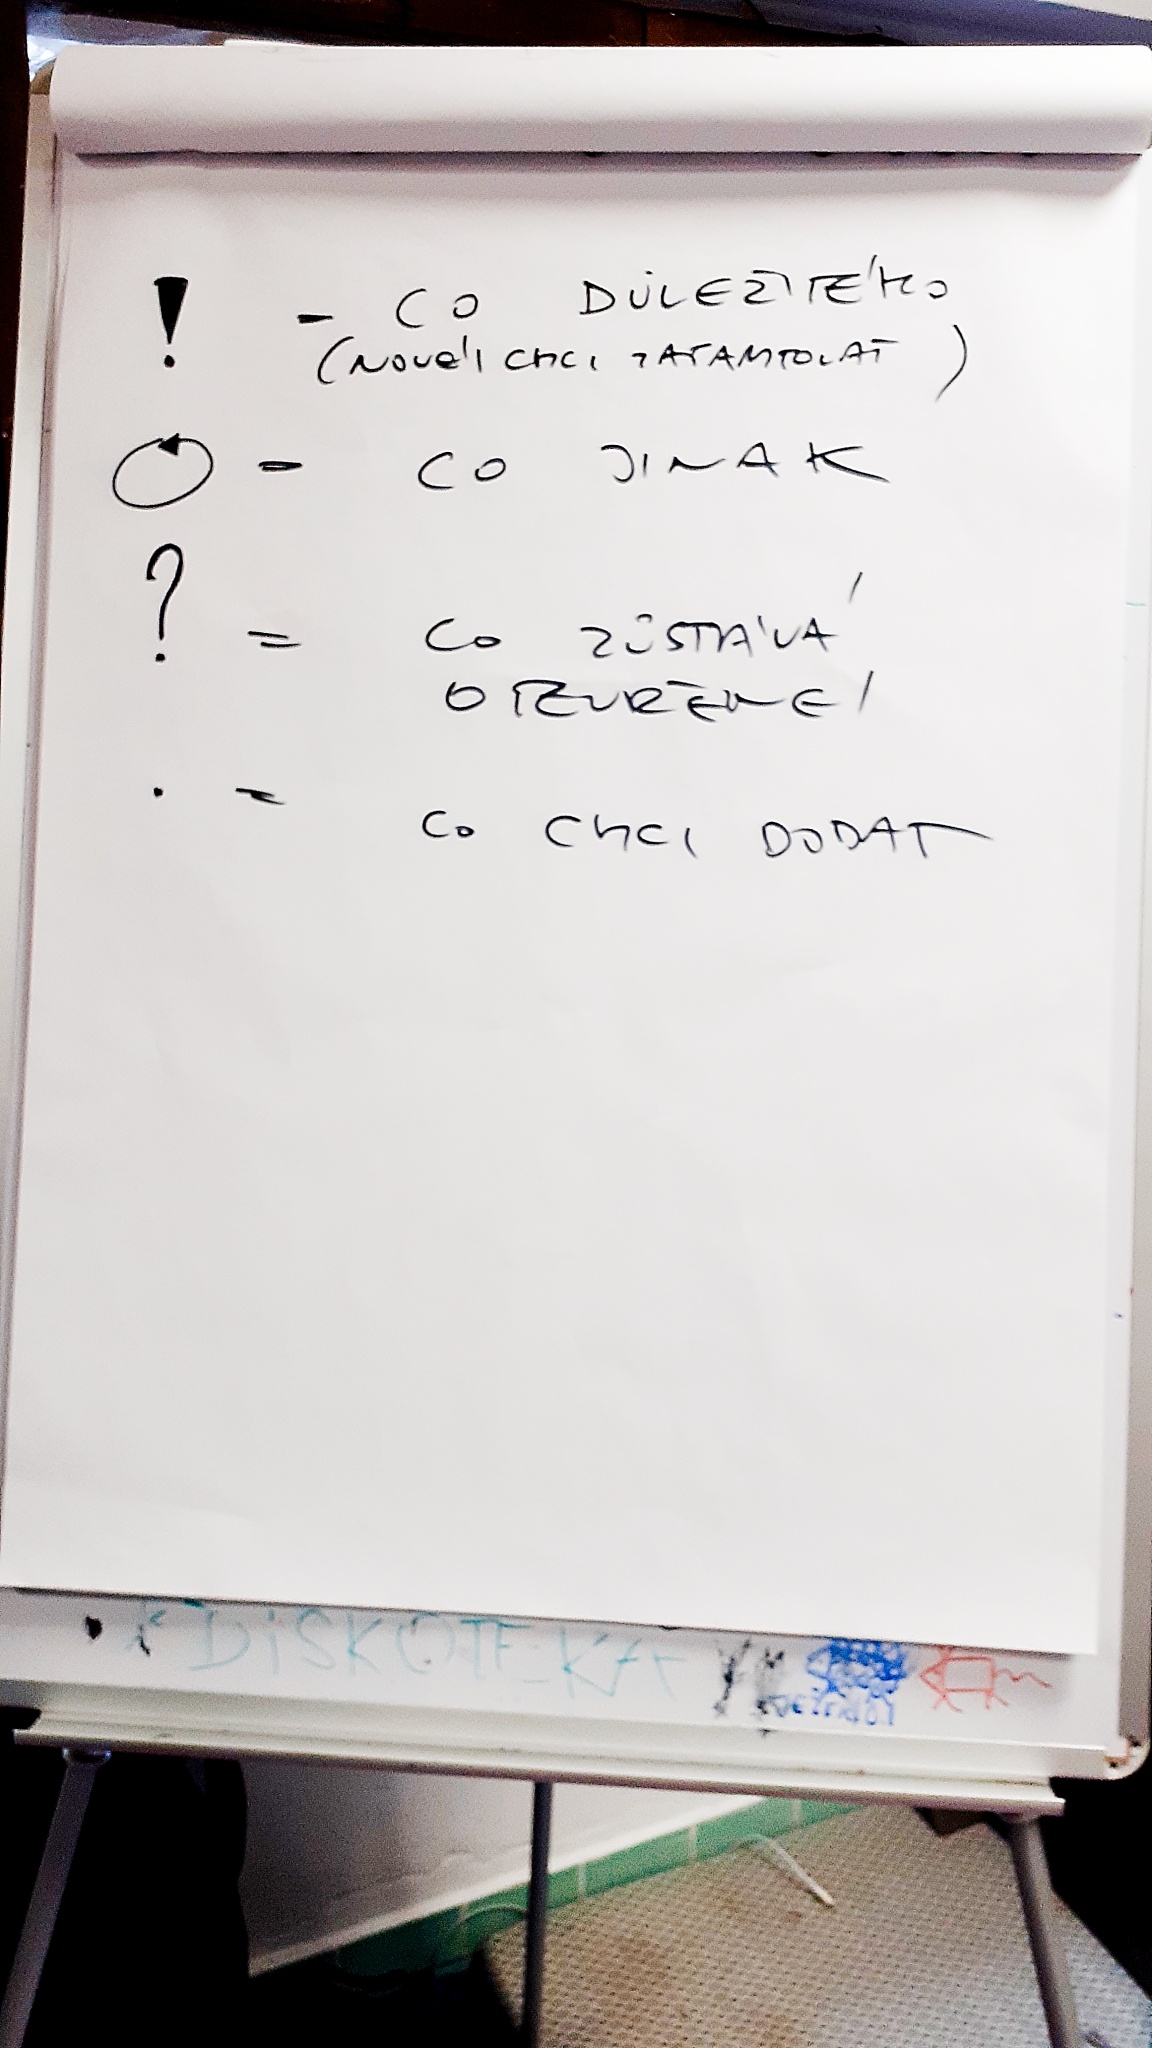 ! - CO DŮLEŽITÉHO
(NOVÉ/I CHCI ZAPAMTOVAT)
- CO JINAK
? = CO ZŮSTÁVÁ
OTEVŘENÉ
. = CO CHCI DODAT
DiSKOTE